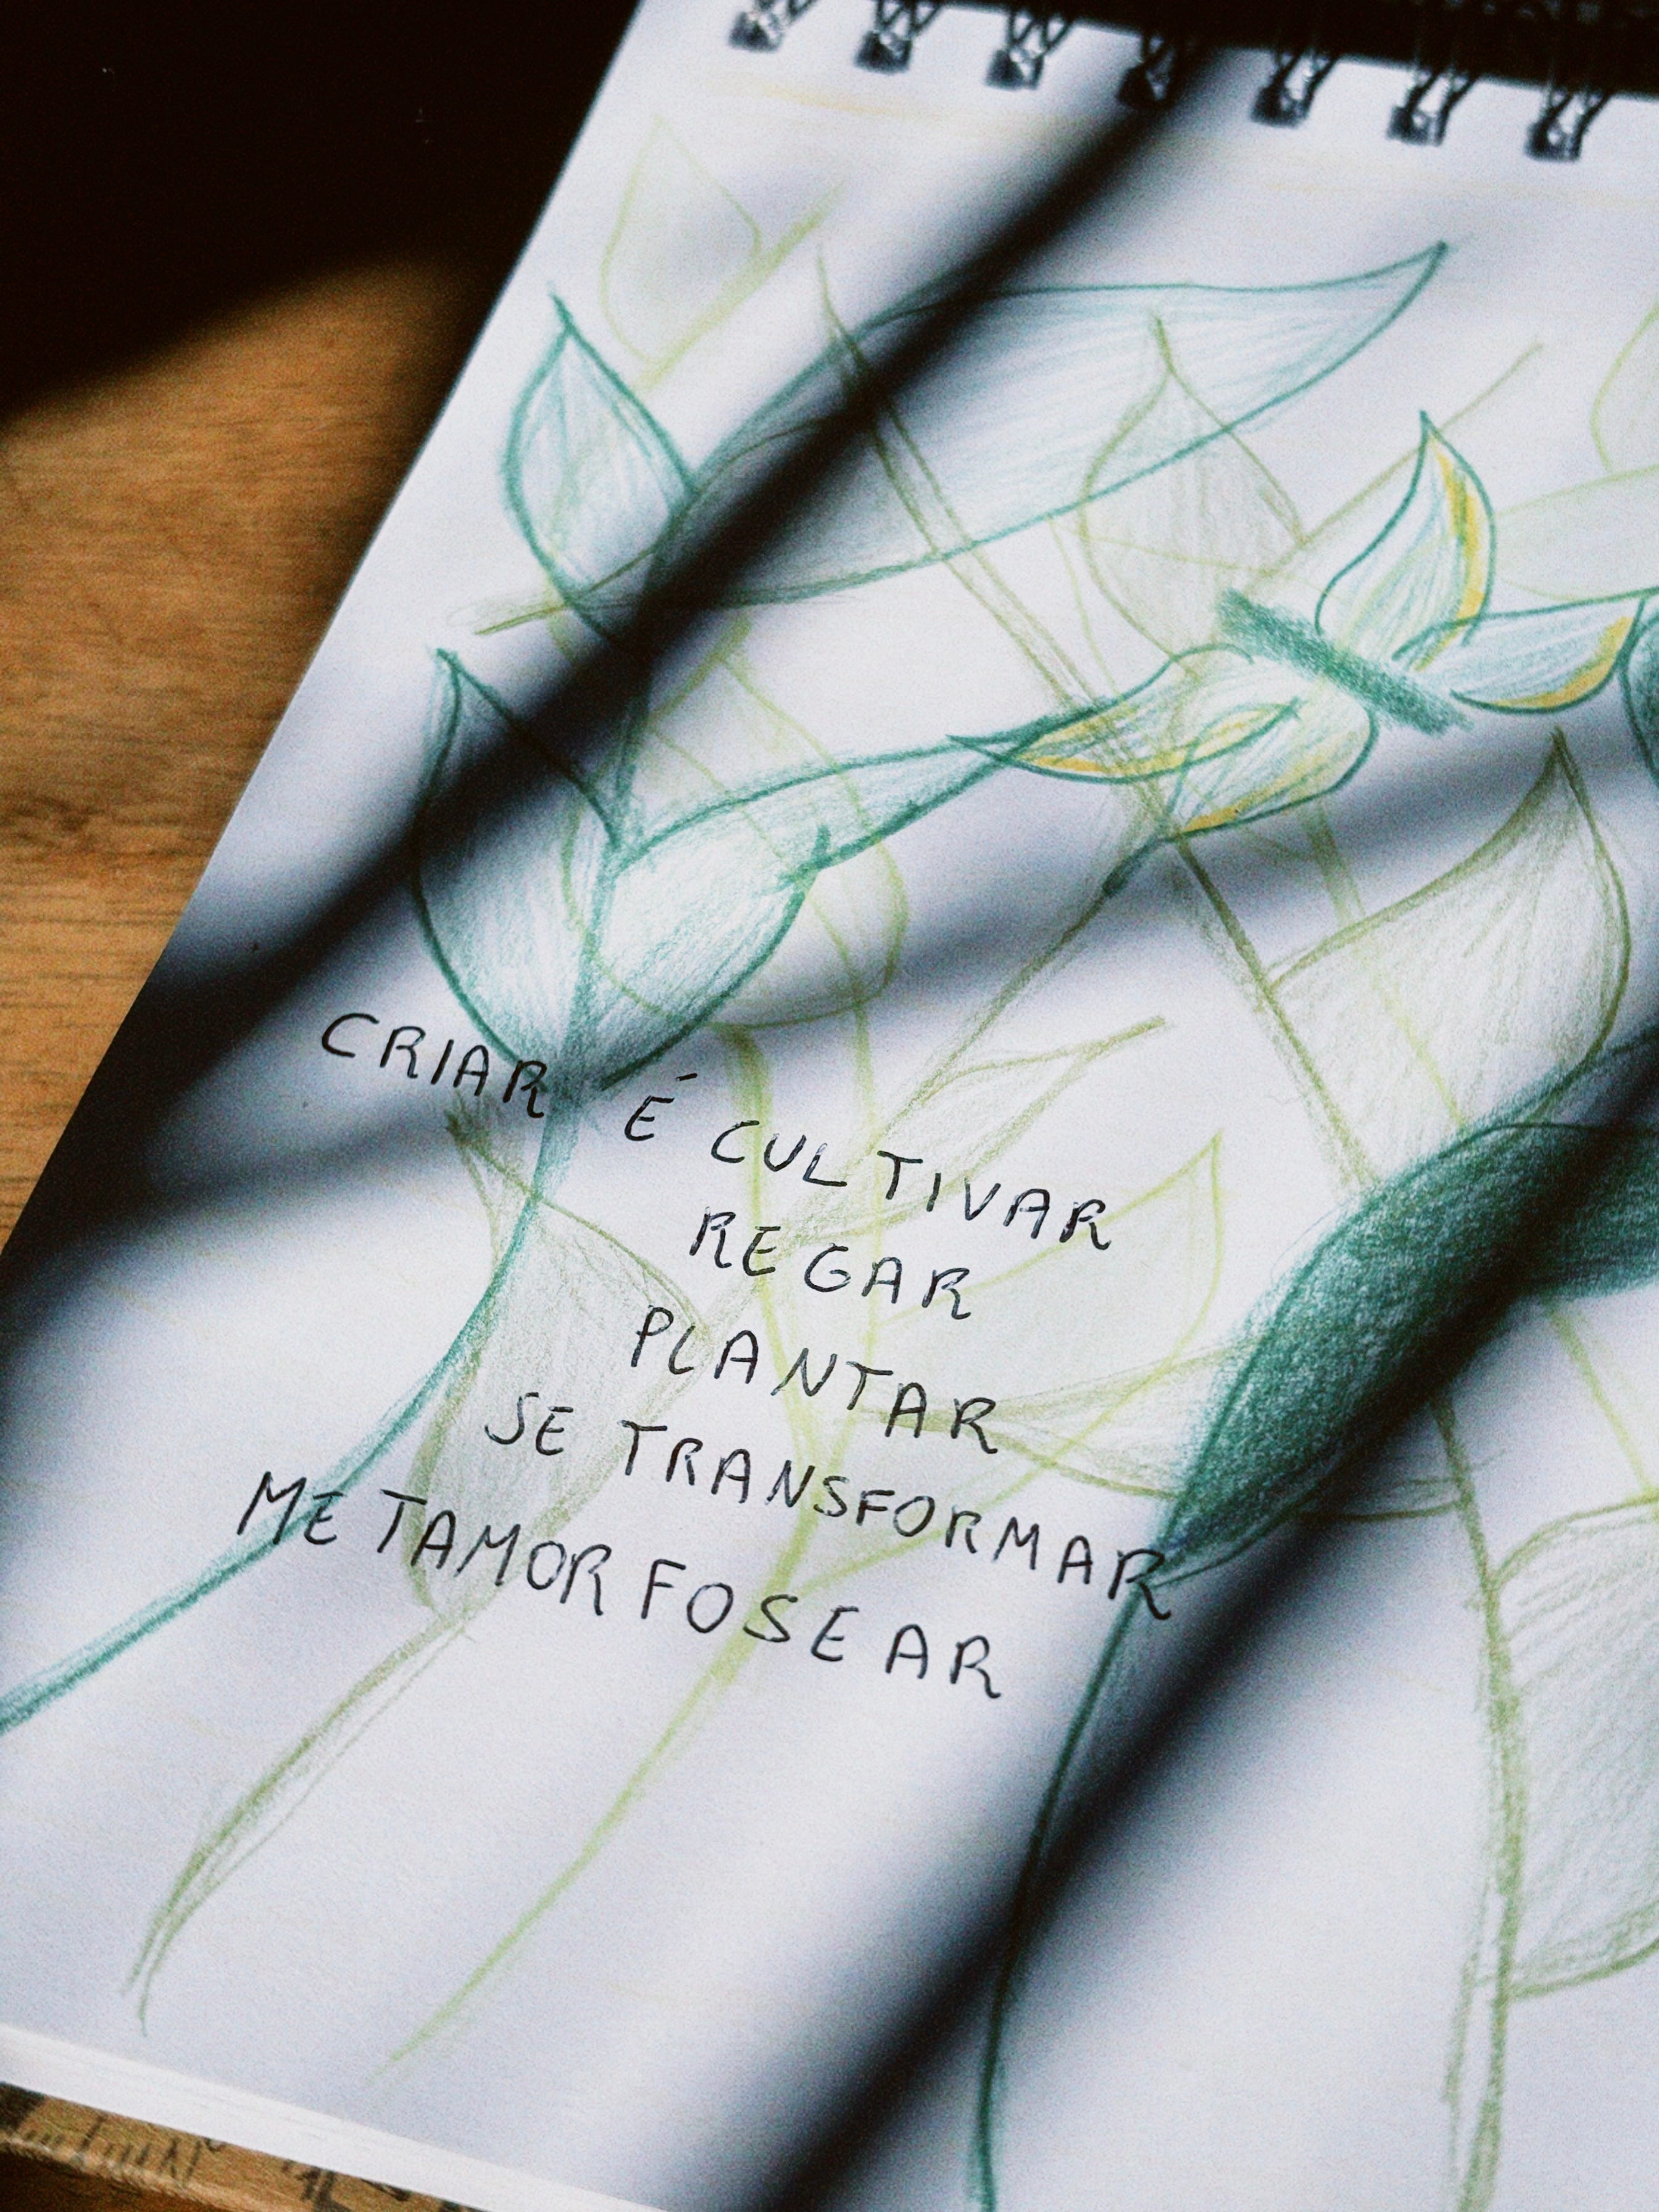 CRIAR É CULTIVAR
REGAR
PLANTAR
SE TRANSFORMAR
METAMORFOSEAR